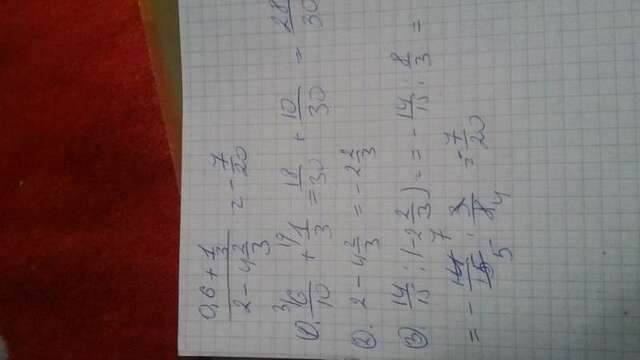 (0,6 + 1/3) / (2 - 4 2/3) = - 7/20
1). ³6/10 + ¹⁰1/3 = 18/30 + 10/30 = 28/30
2). 2 - 4 2/3 = - 2 2/3
3). 14/15 : (- 2 2/3) = = - 14/15 : 8/3 =
= - 14/15 · 3/8 = - 7/20
7
5 4